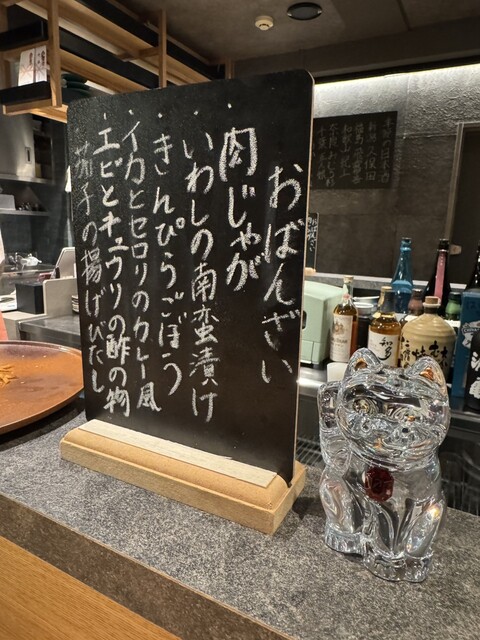 おばんざい
・肉じゃが
・いわしの南蛮漬け
・きんぴらごぼう
・イカとセロリのカレー風
・エビとキュウリの酢の物
・茄子の揚げびたし